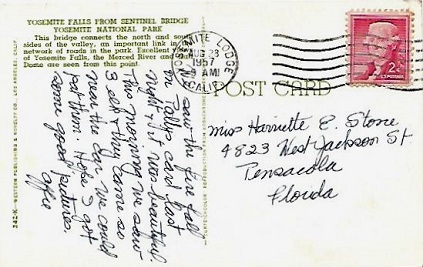 YOSEMITE FALLS FROM SENTINEL BRIDGE
YOSEMITE NATIONAL PARK
This bridge connects the north and south
sides of the valley, an important link in
network of roads in the park. Excellent
of Yosemite Falls, the Merced River and
Dome are seen from this point.
YOSEMITE LODGE
AUG 23
1957
AM
CALIF.
2¢
POST CARD
saw the fire fall
in Valley and last
night & it was beautiful
This morning we saw
3 elk & they came so
near the car we could
pat them. Hope I got
some good pictures.
Miss Harriette E. Stone
4823 West Jackson St
Pensacola
Florida